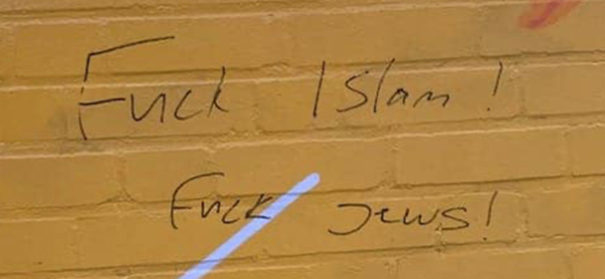 Fuck Islam!
Fuck Jews!